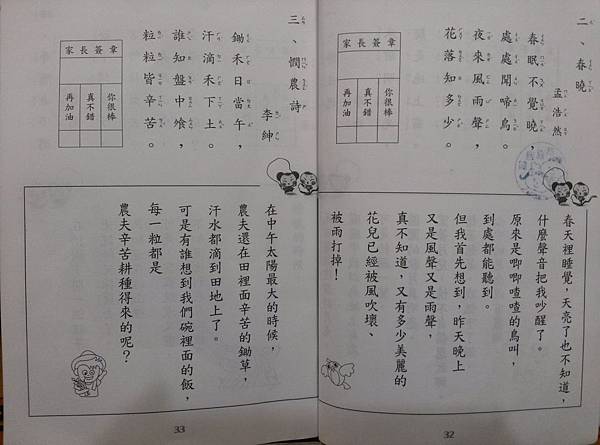 二、春曉
孟浩然
春眠不覺曉，
處處聞啼鳥。
夜來風雨聲，
花落知多少。
家長簽章
你很棒
真不錯
再加油
春天裡睡覺，天亮了也不知道，
什麼聲音把我吵醒了。
原來是唧唧喳喳的鳥叫，
到處都能聽到。
但我首先想到，昨天晚上
又是風聲又是雨聲，
真不知道，又有多少美麗的
花兒已經被風吹壞、
被雨打掉！
32
三、憫農詩
李紳
鋤禾日當午，
汗滴禾下土。
誰知盤中飧，
粒粒皆辛苦。
家長簽章
你很棒
真不錯
再加油
在中午太陽最大的時候，
農夫還在田裡面辛苦的鋤草，
汗水都滴到田地上了。
可是有誰想到我們碗裡面的飯，
每一粒都是
農夫辛苦耕種得來的呢？
33